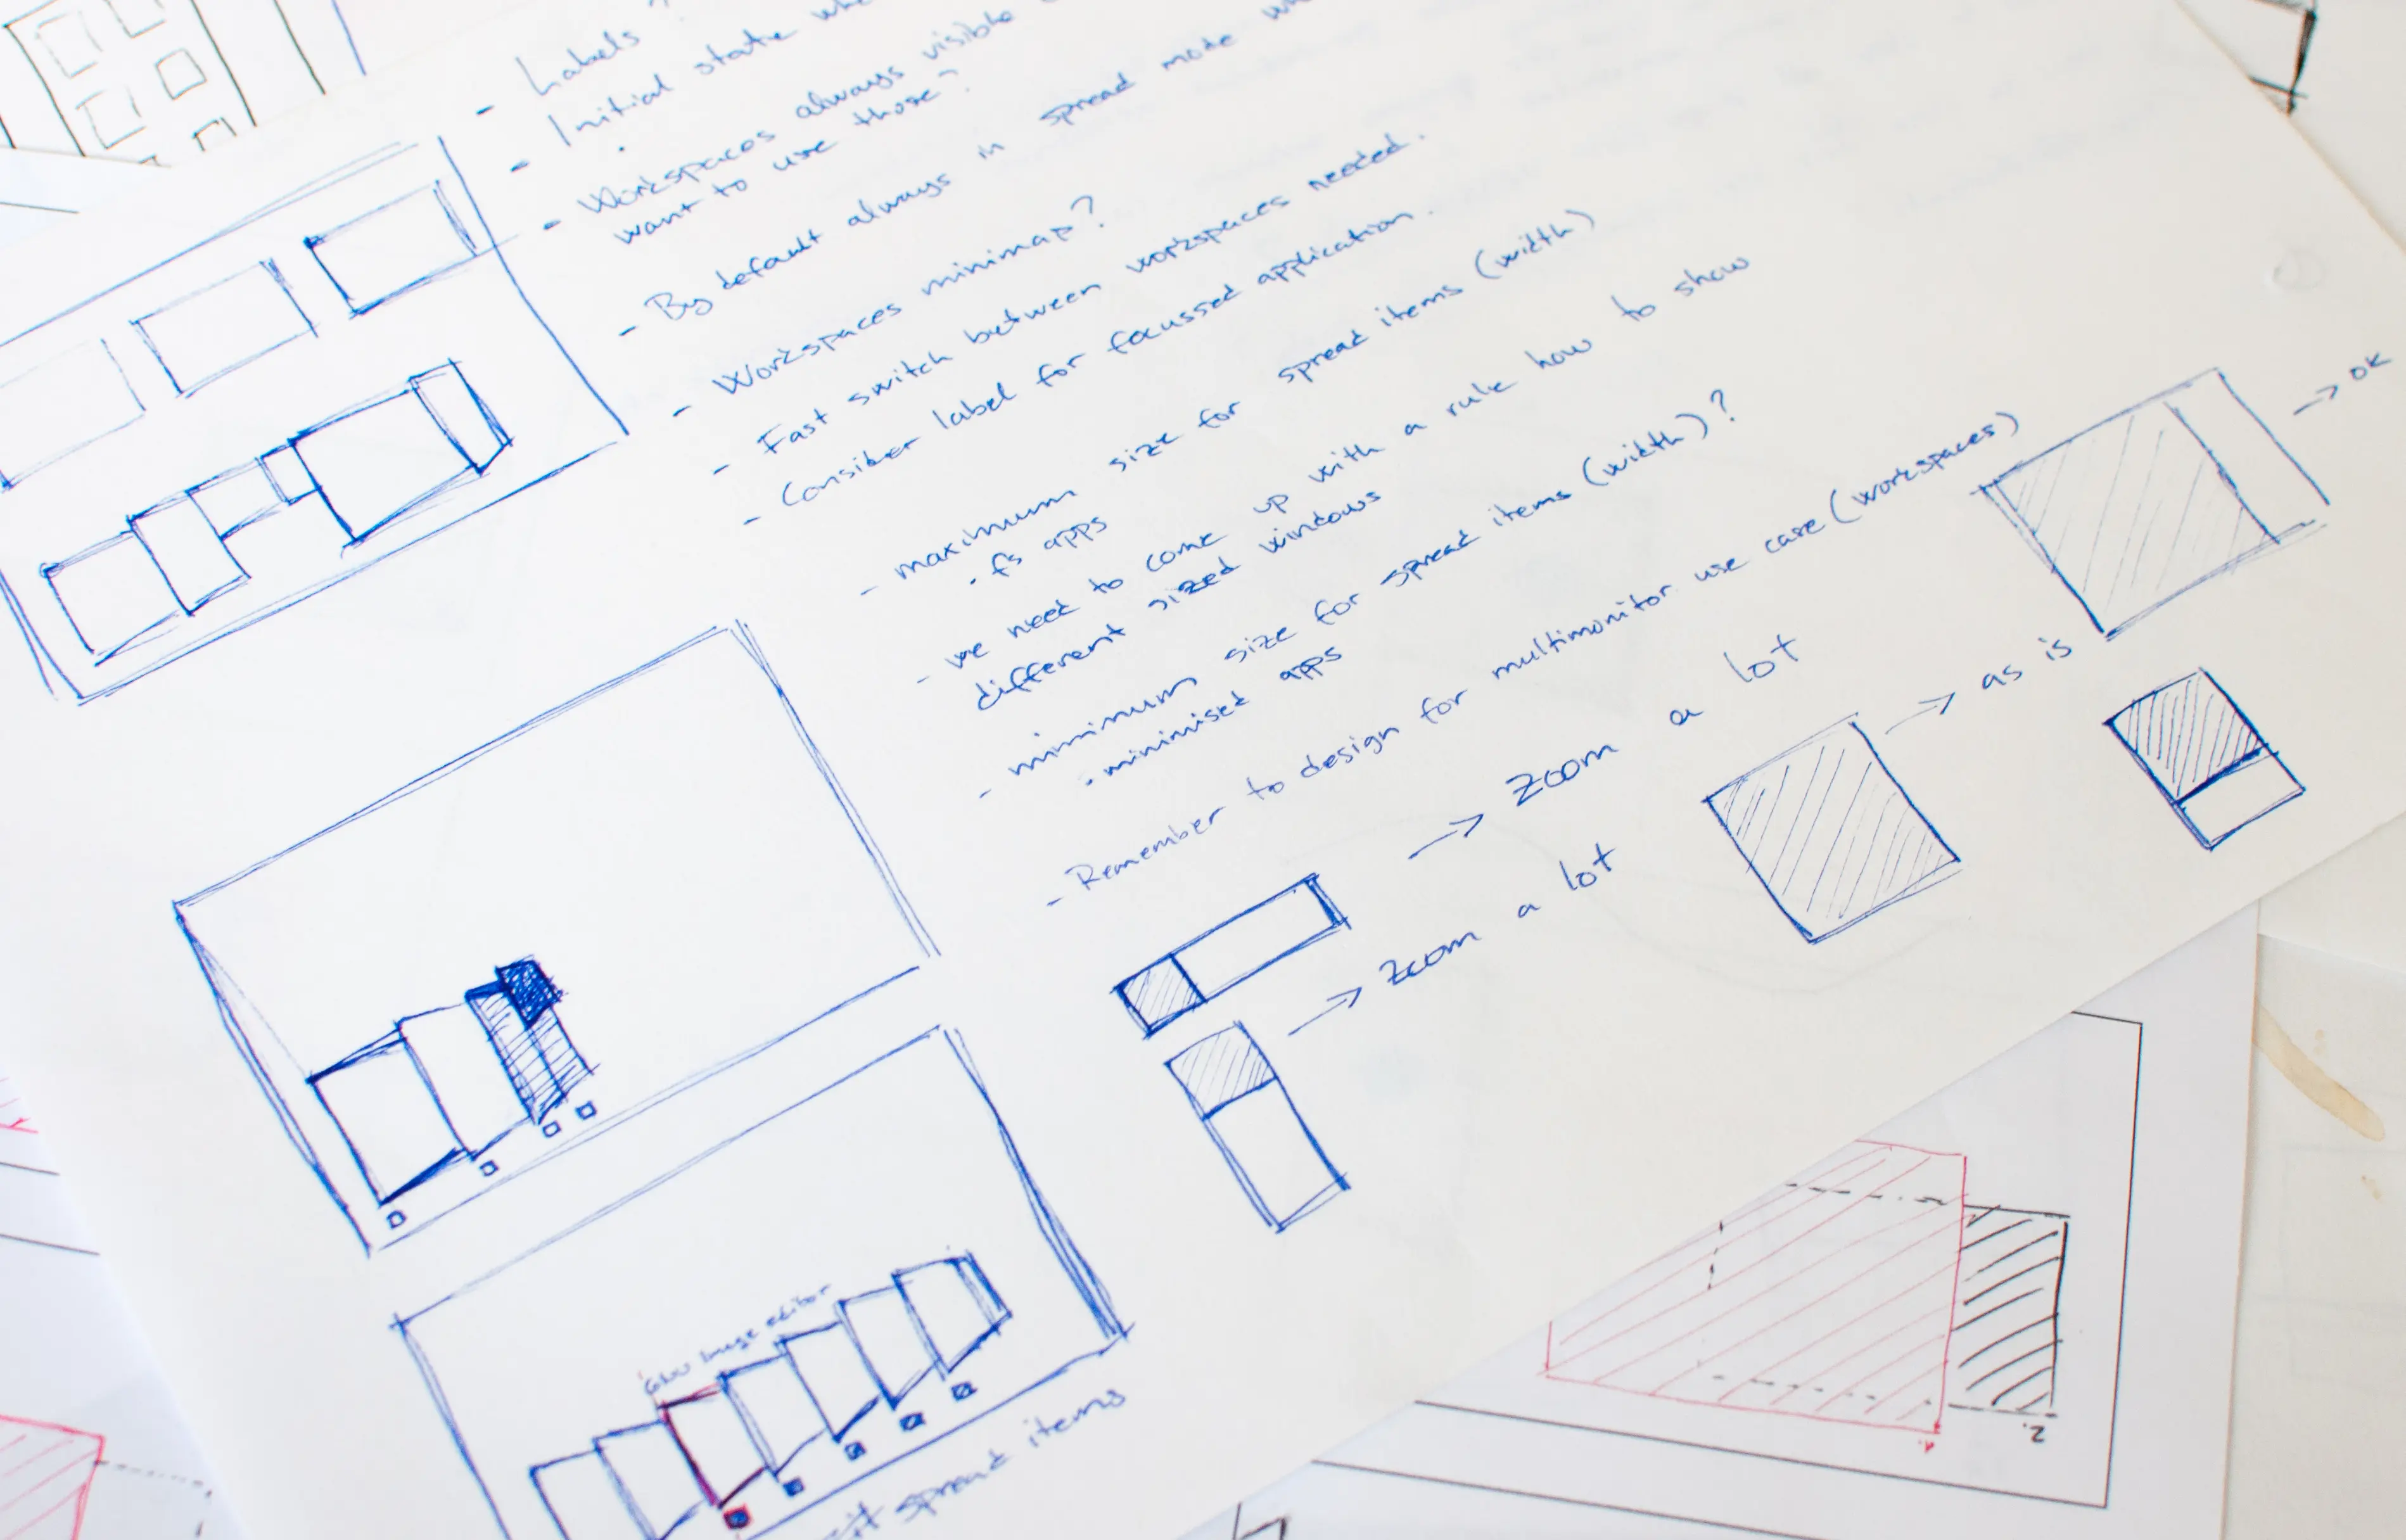 - Labels ?
- Initial state
- Workspaces always visible
want to use those?
- By default always in spread mode
- Workspaces minimap?
- Fast switch between workspaces needed.
- Consider label for focussed application.
- maximum size for spread items (width)
· fs apps
- we need to come up with a rule how to show
different sized windows
- minimum size for spread items (width)?
· minimised apps
- Remember to design for multimonitor use case (workspaces)
→ Zoom a lot
→ Zoom a lot
→ as is
→ ok
Image editor
spread items
1.
2.